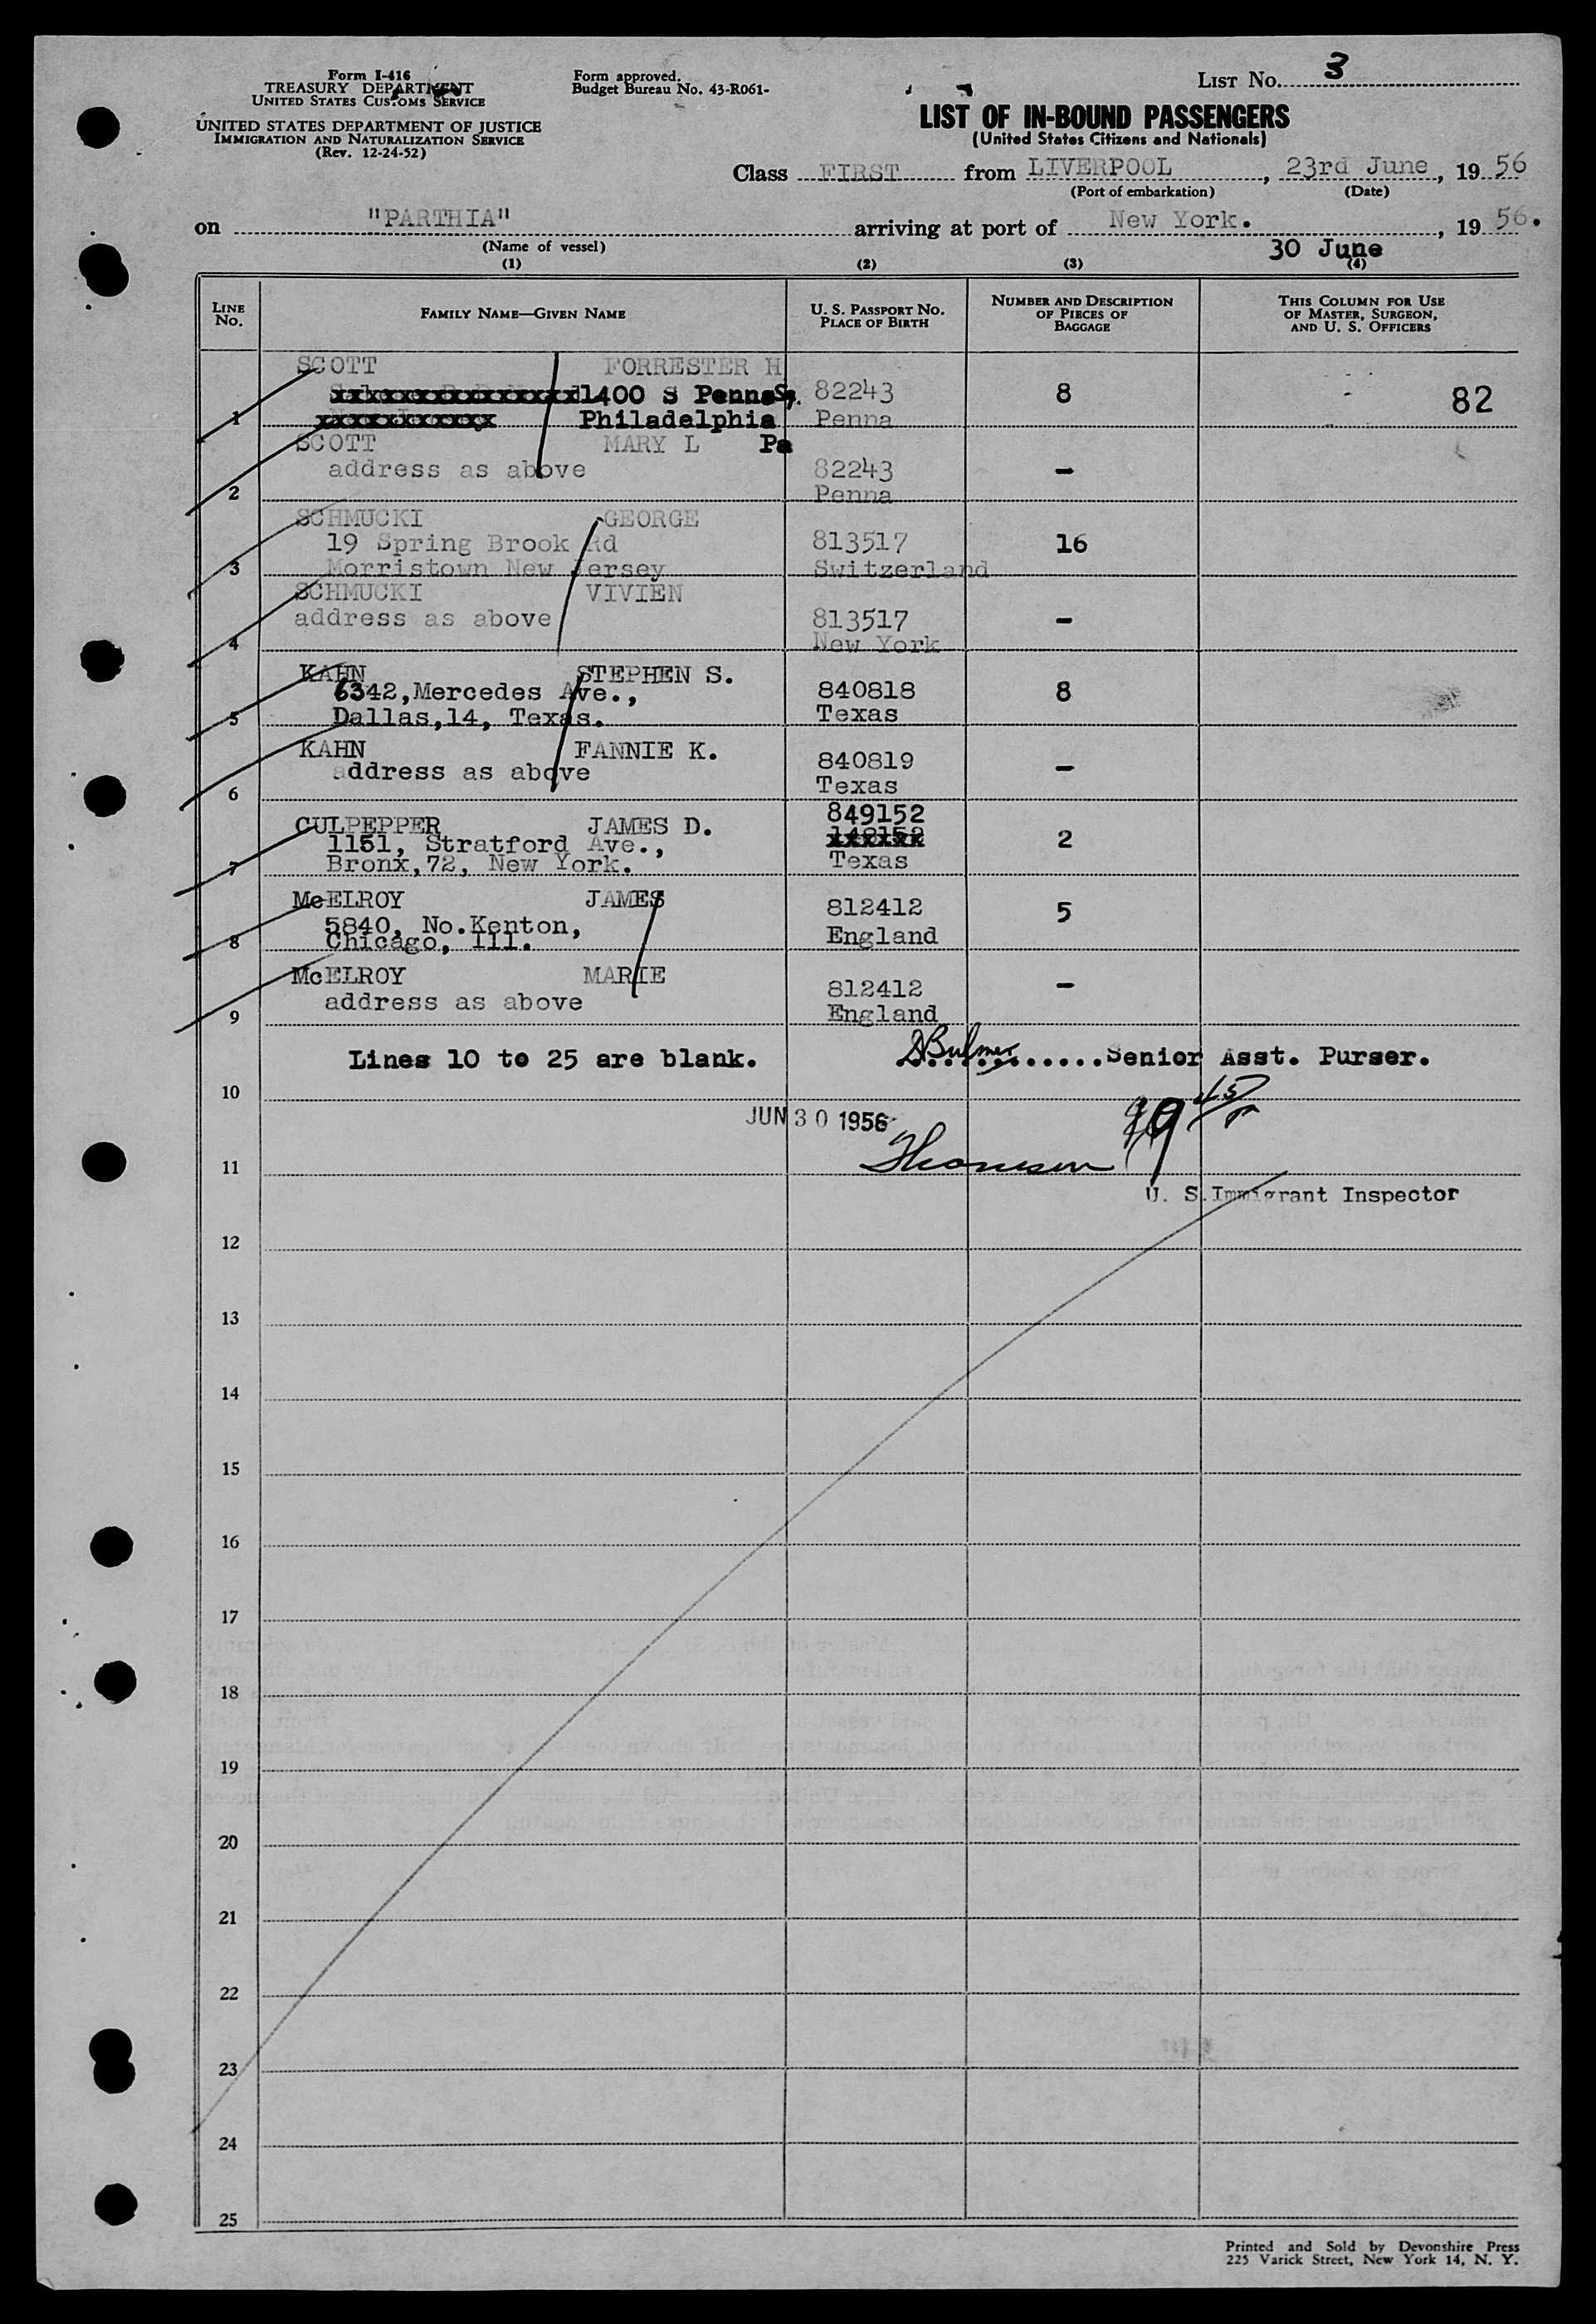 Form I-416
TREASURY DEPARTMENT
UNITED STATES CUSTOMS SERVICE
UNITED STATES DEPARTMENT OF JUSTICE
IMMIGRATION AND NATURALIZATION SERVICE
(Rev. 12-24-52)
Form approved.
Budget Bureau No. 43-R061-
LIST No. 3
LIST OF IN-BOUND PASSENGERS
(United States Citizens and Nationals)
Class FIRST from LIVERPOOL, 23rd June, 19 56
(Port of embarkation) (Date)
on "PARTHIA" arriving at port of New York., 19 56.
(Name of vessel) 30 June
(1) (2) (3) (4)
LINE No. FAMILY NAME—GIVEN NAME U. S. PASSPORT No. PLACE OF BIRTH NUMBER AND DESCRIPTION OF PIECES OF BAGGAGE THIS COLUMN FOR USE OF MASTER, SURGEON, AND U. S. OFFICERS
SCOTT FORRESTER H
1400 S Penna Sq. 82243 8 82
1 Philadelphia Penna
SCOTT MARY L Pa
address as above 82243 -
2 Penna
SCHMUCKI GEORGE
19 Spring Brook Rd 813517 16
3 Morristown New Jersey Switzerland
SCHMUCKI VIVIEN
address as above 813517 -
4 New York
KAHN STEPHEN S.
6342, Mercedes Ave., 840818 8
5 Dallas,14, Texas. Texas
KAHN FANNIE K. 840819
address as above -
6 Texas
849152
CULPEPPER JAMES D.
1151, Stratford Ave., 2
7 Bronx,72, New York. Texas
McELROY JAMES 812412 5
5840, No.Kenton,
8 Chicago, Ill. England
McELROY MARIE 812412 -
address as above
9 England
Lines 10 to 25 are blank. ............Senior Asst. Purser.
10
JUN 30 1956
11
U. S. Immigrant Inspector
12
13
14
15
16
17
18
19
20
21
22
23
24
25
Printed and Sold by Devonshire Press
225 Varick Street, New York 14, N. Y.